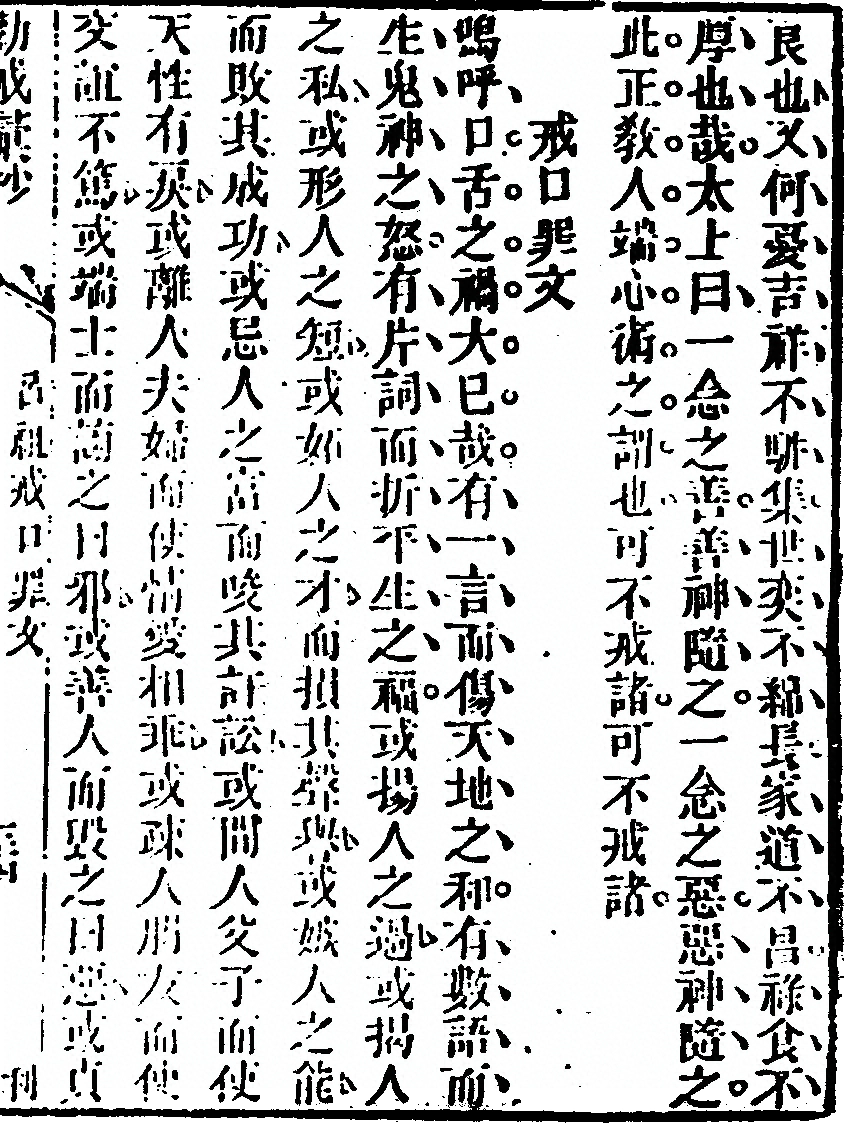 良也又何憂吉祥不駢集世奕不綿長家道不昌祿食不
厚也哉太上曰一念之善善神隨之一念之惡惡神隨之
此正敎人端心術之訓也可不戒諸可不戒諸
戒口罪文
嗚呼口舌之禍大巳哉有一言而傷天地之和有數語而
生鬼神之怒有片詞而折平生之福或揚人之過或揭人
之私或形人之短或妬人之才而損其聲與或嫉人之能
而敗其成功或忌人之富而唆其訐訟或間人父子而使
天性有戾或離人夫婦而使情愛相乖或疎人朋友而使
交誼不篤或端士而謗之曰邪或善人而毀之曰惡或貞
呂祖戒口罪文